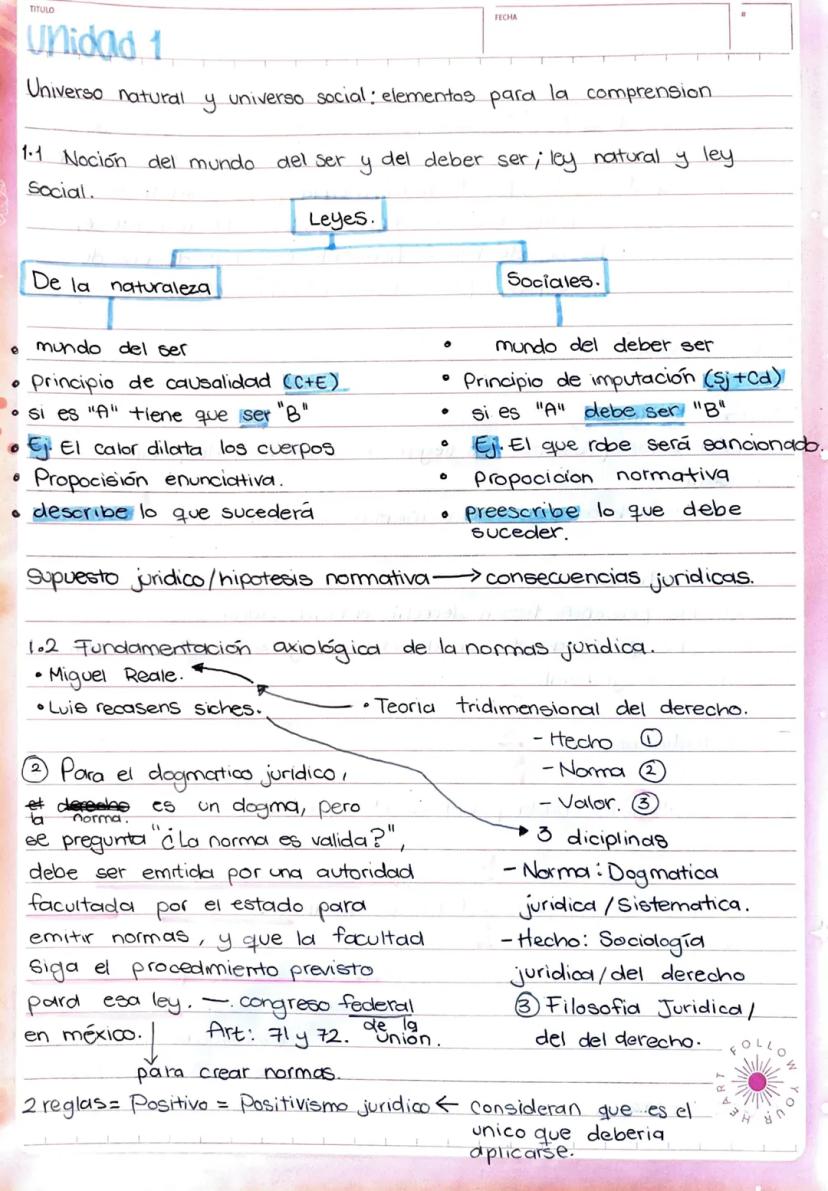 TITULO
FECHA
#
Unidad 1
Universo natural y universo social: elementos para la comprension
1.1 Noción del mundo del ser y del deber ser; ley natural y ley
Social.
Leyes.
De la naturaleza
• mundo del ser
• Principio de causalidad (C+E)
• si es "A" tiene que ser "B"
• Ej. El calor dilata los cuerpos
• Propocisión enunciativa.
• describe lo que sucederá
Sociales.
• mundo del deber ser
• Principio de imputación (Sj+Cd)
• si es "A" debe ser "B"
• Ej. El que robe será sancionado.
• Propocicion normativa
• preescribe lo que debe
suceder.
Supuesto juridico/hipotesis normativa → consecuencias juridicas.
1.2 Fundamentación axiológica de la normas juridica.
• Miguel Reale.
• Luis recasens siches.
• Teoria tridimensional del derecho.
- Hecho ①
- Norma ②
- Valor. ③
3 diciplinas
- Norma: Dogmatica
juridica / Sistematica.
- Hecho: Sociología
juridica/del derecho
③ Filosofia Juridica/
del del derecho.
② Para el dogmatico juridico,
el derecho es un dogma, pero
la norma.
se pregunta "¿La norma es valida?",
debe ser emitida por una autoridad
facultada por el estado para
emitir normas, y que la facultad
Siga el procedimiento previsto
para esa ley. — congreso federal
de la unión.
en méxico. Art: 71 y 72.
↓
para crear normas.
2 reglas = Positivo = Positivismo juridico ← consideran que es el
unico que deberia
aplicarse.
FOLLOW YOUR HEART